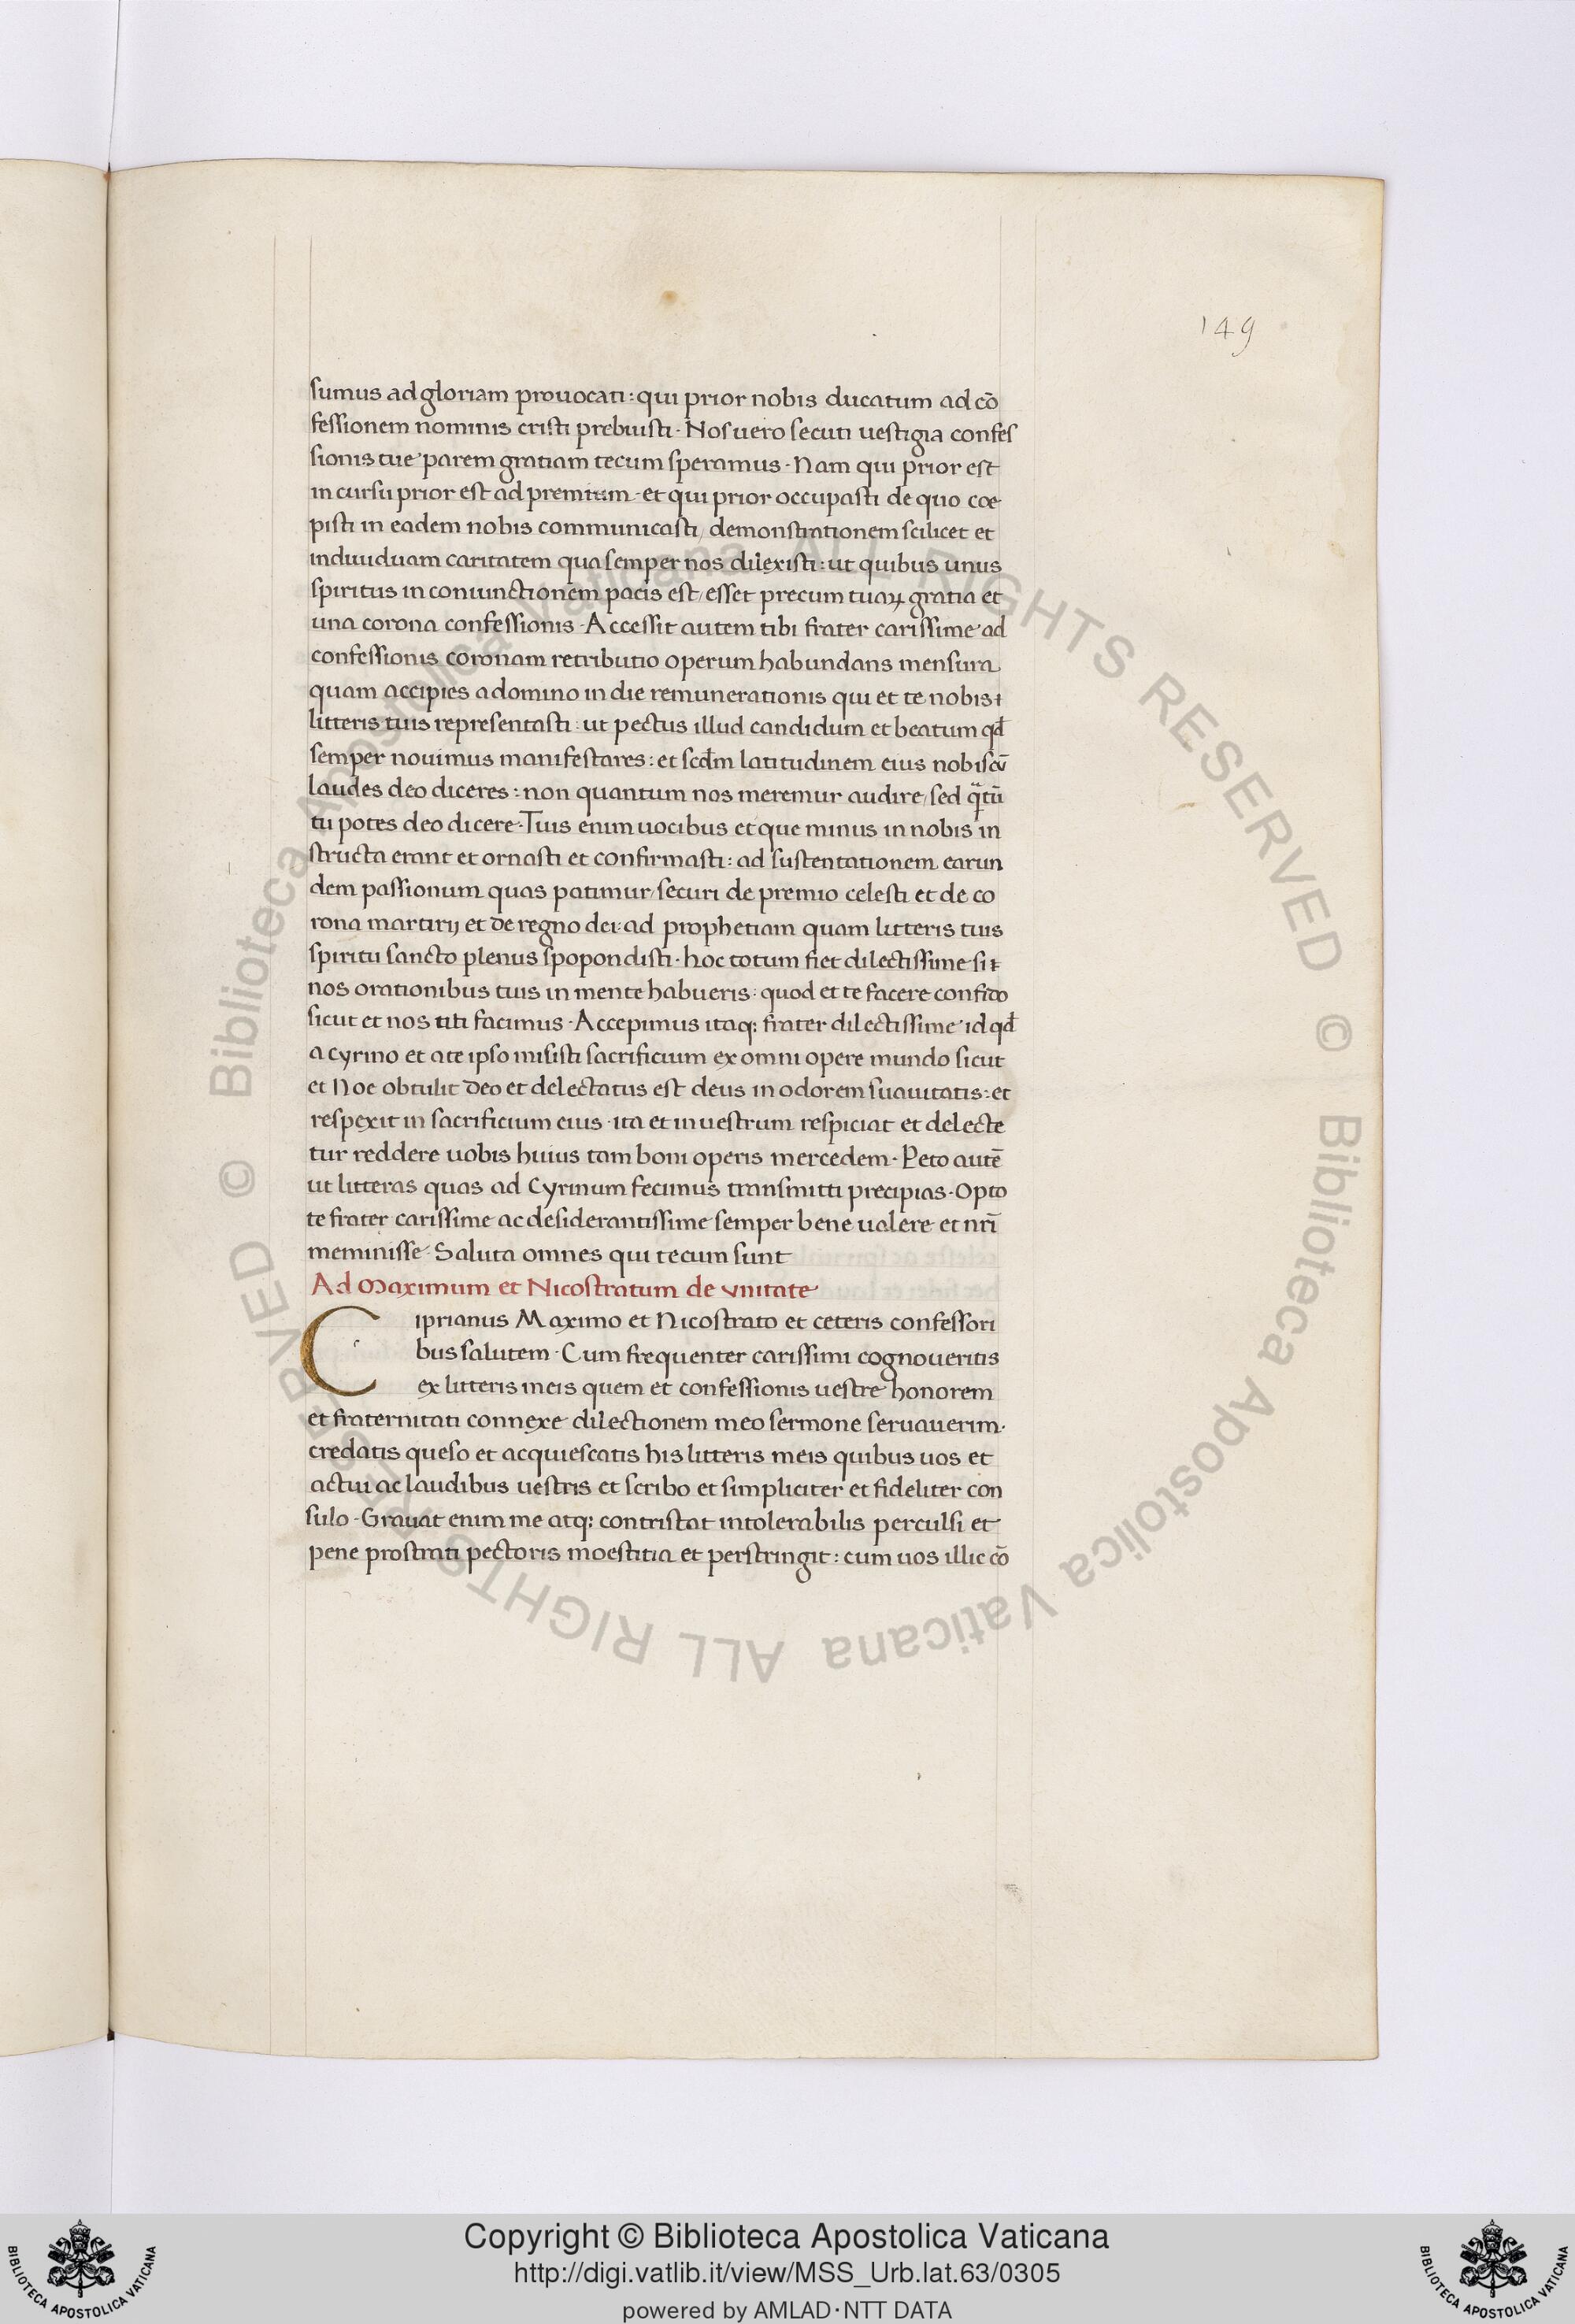 149
sumus ad gloriam prouocati: qui prior nobis ducatum ad cō
fessionem nominis cristi prebuisti· Nos uero secuti uestigia confes
sionis tue parem gratiam tecum speramus· Nam qui prior est
in cursu prior est ad premium· et qui prior occupasti de quo coe
pisti in eadem nobis communicasti/ demonstrationem scilicet et
induuduam caritatem qua semper nos dilexisti: ut quibus unus
spiritus in coniunctionem pacis est/ esset precum tuaꝝ gratia et
una corona confessionis· Accessit autem tibi frater carissime ad
confessionis coronam retributio operum habundans mensura
quam accipies a domino in die remunerationis qui et te nobis
litteris tuis representasti: ut pectus illud candidum et beatum qđ
semper nouimus manifestares: et scđm latitudinem eius nobiscū
laudes deo diceres: non quantum nos meremur audire/ sed qᷓtū
tu potes deo dicere· Tuis enim uocibus et que minus in nobis in
structa erant et ornasti et confirmasti: ad sustentationem earun
dem passionum quas patimur/ securi de premio celesti et de co
rona martirij et de regno dei: ad prophetiam quam litteris tuis
spiritu sancto plenus spopondisti· hoc totum fiet dilectissime si
nos orationibus tuis in mente habueris: quod et te facere confido
sicut et nos titi facimus· Accepimus itaq; frater dilectissime id qđ
a cyrino et a te ipso misisti sacrificium ex omni opere mundo sicut
et Noe obtulit deo et delectatus est deus in odorem suauitatis: et
respexit in sacrificium eius· ita et in uestrum respiciat et delecte
tur reddere uobis huius tam boni operis mercedem· Peto autē
ut litteras quas ad Cyrinum fecimus transmitti precipias· Opto
te frater carissime ac desiderantissime semper bene ualere et nr̄i
meminisse· Saluta omnes qui tecum sunt
Ad Maximum et Nicostratum de vnitate
Ciprianus Maximo et Nicostrato et ceteris confessori
bus salutem· Cum frequenter carissimi cognoueritis
ex litteris meis quem et confessionis uestre honorem
et fraternitati connexe dilectionem meo sermone seruauerim·
credatis queso et acquiescatis his litteris meis quibus uos et
actui ac laudibus uestris et scribo et simpliciter et fideliter con
sulo· Grauat enim me atq; contristat intolerabilis perculsi et
pene prostrati pectoris moestitia et perstringit: cum uos illic cō
© Biblioteca Apostolica Vaticana ALL RIGHTS RESERVED © Biblioteca Apostolica Vaticana ALL RIGHTS RESERVED
BIBLIOTECA APOSTOLICA VATICANA
Copyright © Biblioteca Apostolica Vaticana
http://digi.vatlib.it/view/MSS_Urb.lat.63/0305
powered by AMLAD·NTT DATA
BIBLIOTECA APOSTOLICA VATICANA